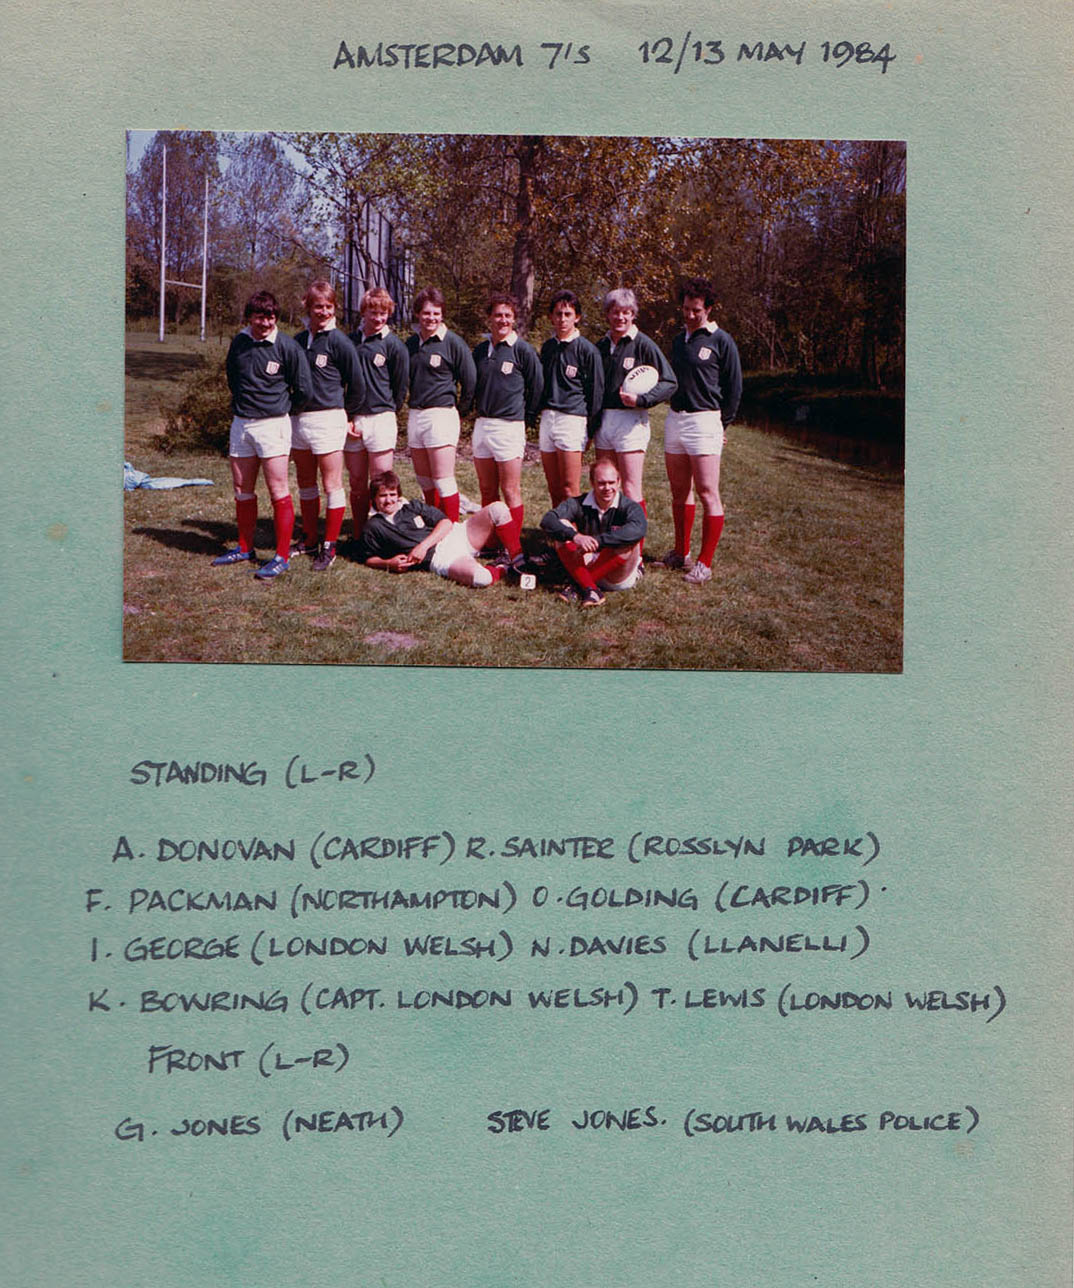 AMSTERDAM 7's 12/13 MAY 1984
2
STANDING (L-R)
A. DONOVAN (CARDIFF) R. SAINTER (ROSSLYN PARK)
F. PACKMAN (NORTHAMPTON) O. GOLDING (CARDIFF)
I. GEORGE (LONDON WELSH) N. DAVIES (LLANELLI)
K. BOWRING (CAPT. LONDON WELSH) T. LEWIS (LONDON WELSH)
FRONT (L-R)
G. JONES (NEATH) STEVE JONES. (SOUTH WALES POLICE)